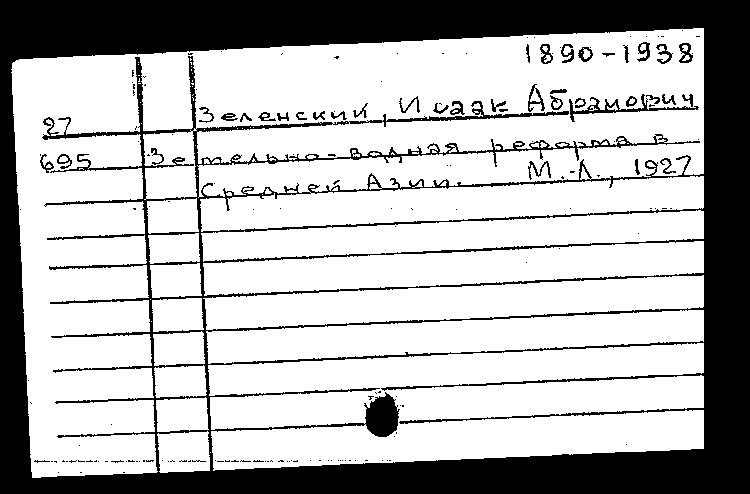 1890-1938
27 Зеленский, Исаак Абрамович
695 Земельно-водная реформа в
Средней Азии. М.-Л., 1927